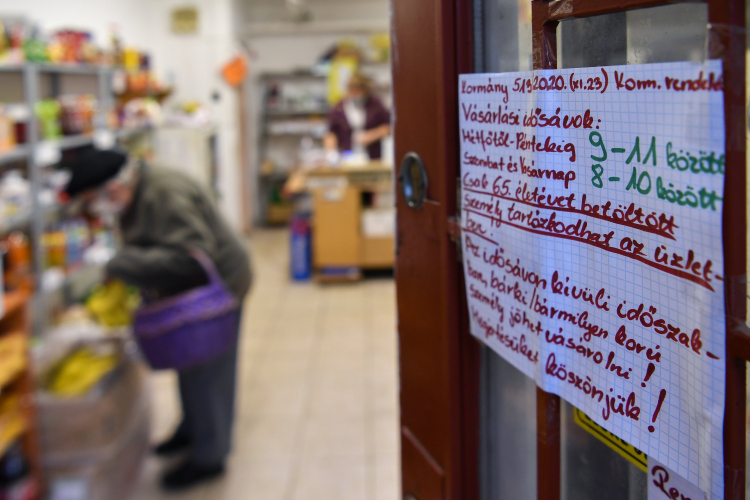 Kormány 513/2020. (XI.23) Korm. rendelet
Vásárlási idősávok:
Hétfőtől-Péntekig 9-11 között
Szombat és Vasárnap 8-10 között
Csak 65. életévet betöltött
személy tartózkodhat az üzlet-
ben.
Az idősávon kívüli időszak-
ban, bárki/bármilyen korú
személy jöhet vásárolni!
Megértésüket köszönjük!